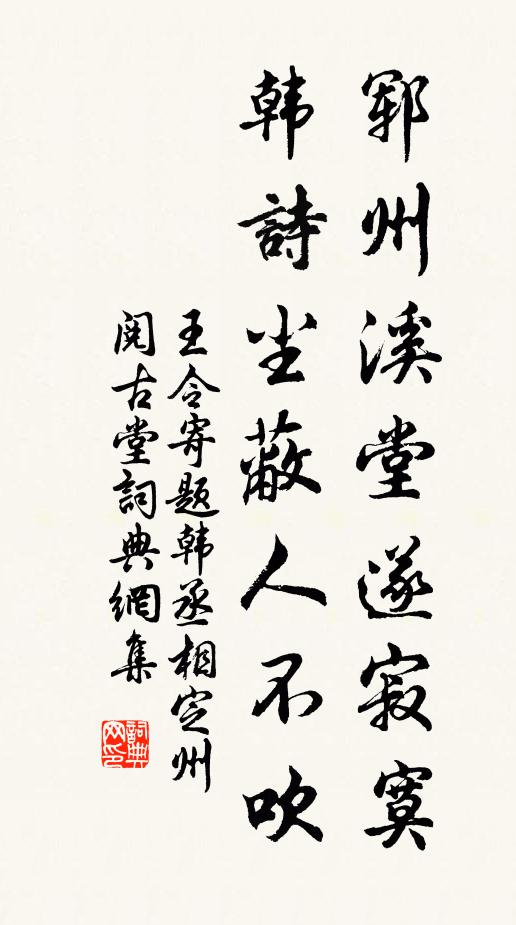 鄆州溪堂遂寂寞
韩詩坐蔽人不吹
王令寄题韩丞相定州
阅古堂詞典網集
詞典
网印